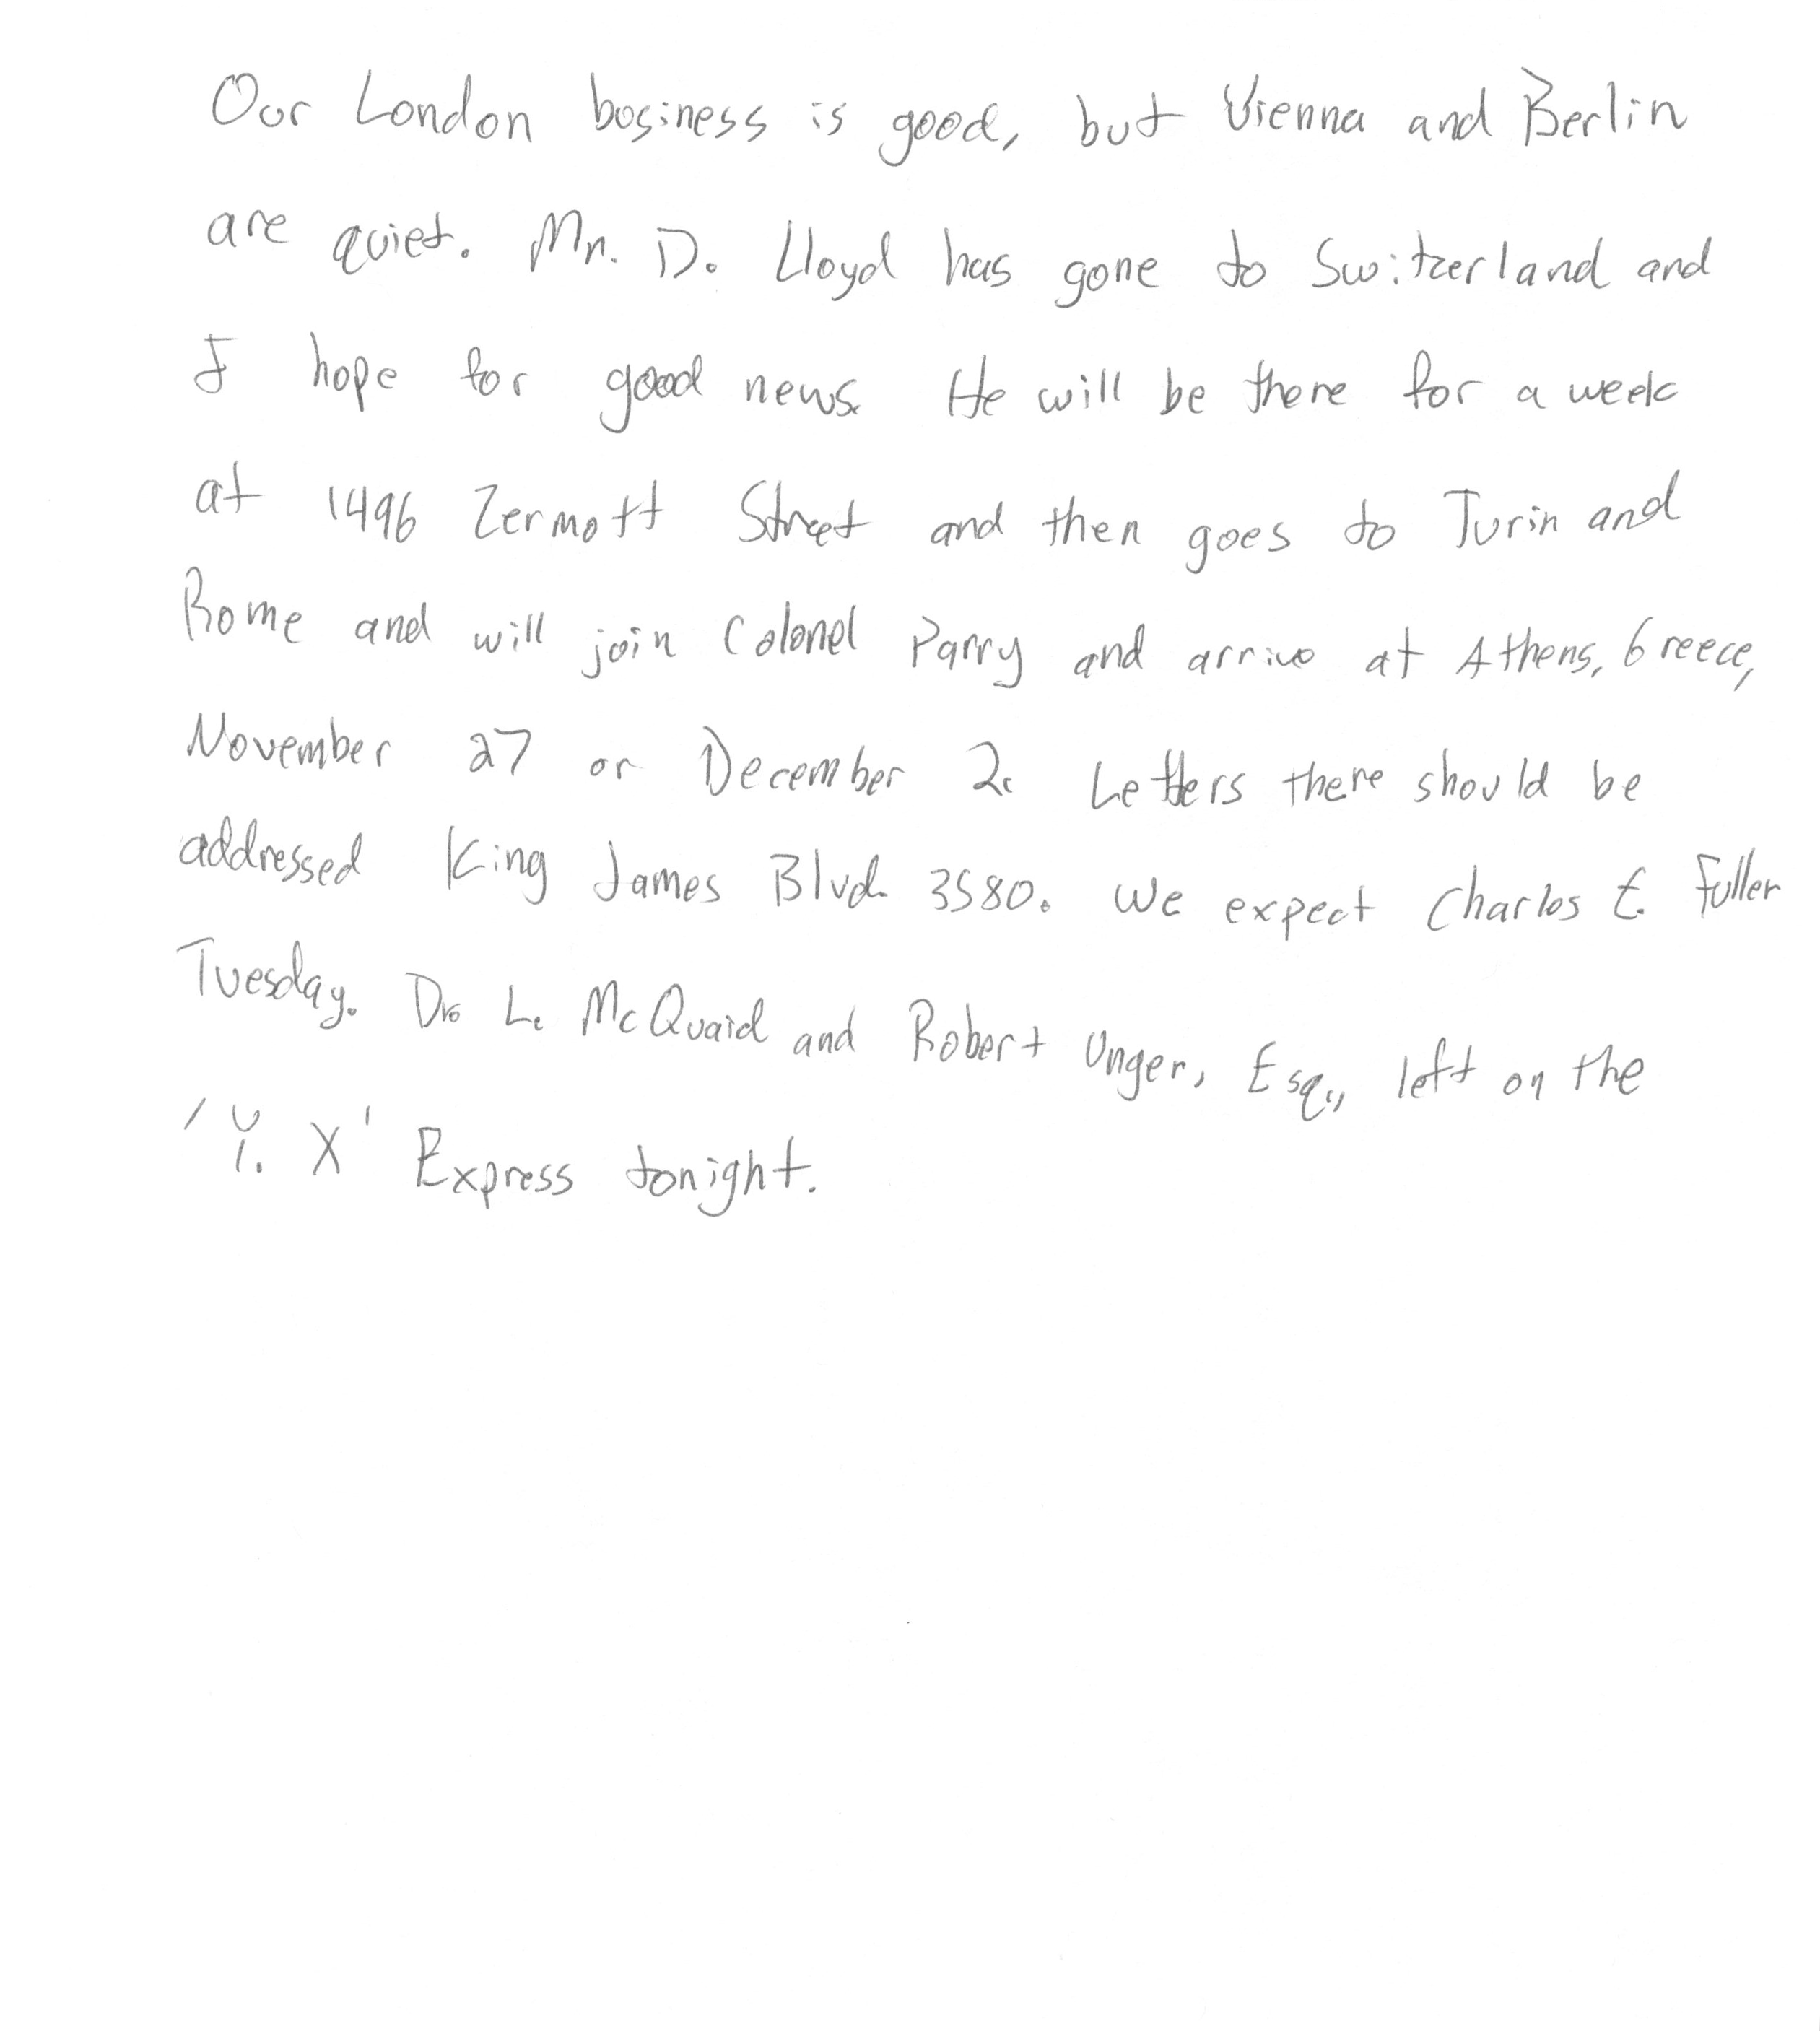 Our London business is good, but Vienna and Berlin
are quiet. Mr. D. Lloyd has gone to Switzerland and
I hope for good news. He will be there for a week
at 1496 Zermott Street and then goes to Turin and
Rome and will join Colonel Parry and arrive at Athens, Greece,
November 27 or December 2. Letters there should be
addressed King James Blvd. 3580. We expect Charles E. Fuller
Tuesday. Dr. L. McQuaid and Robert Unger, Esq., left on the
'Y. X' Express tonight.